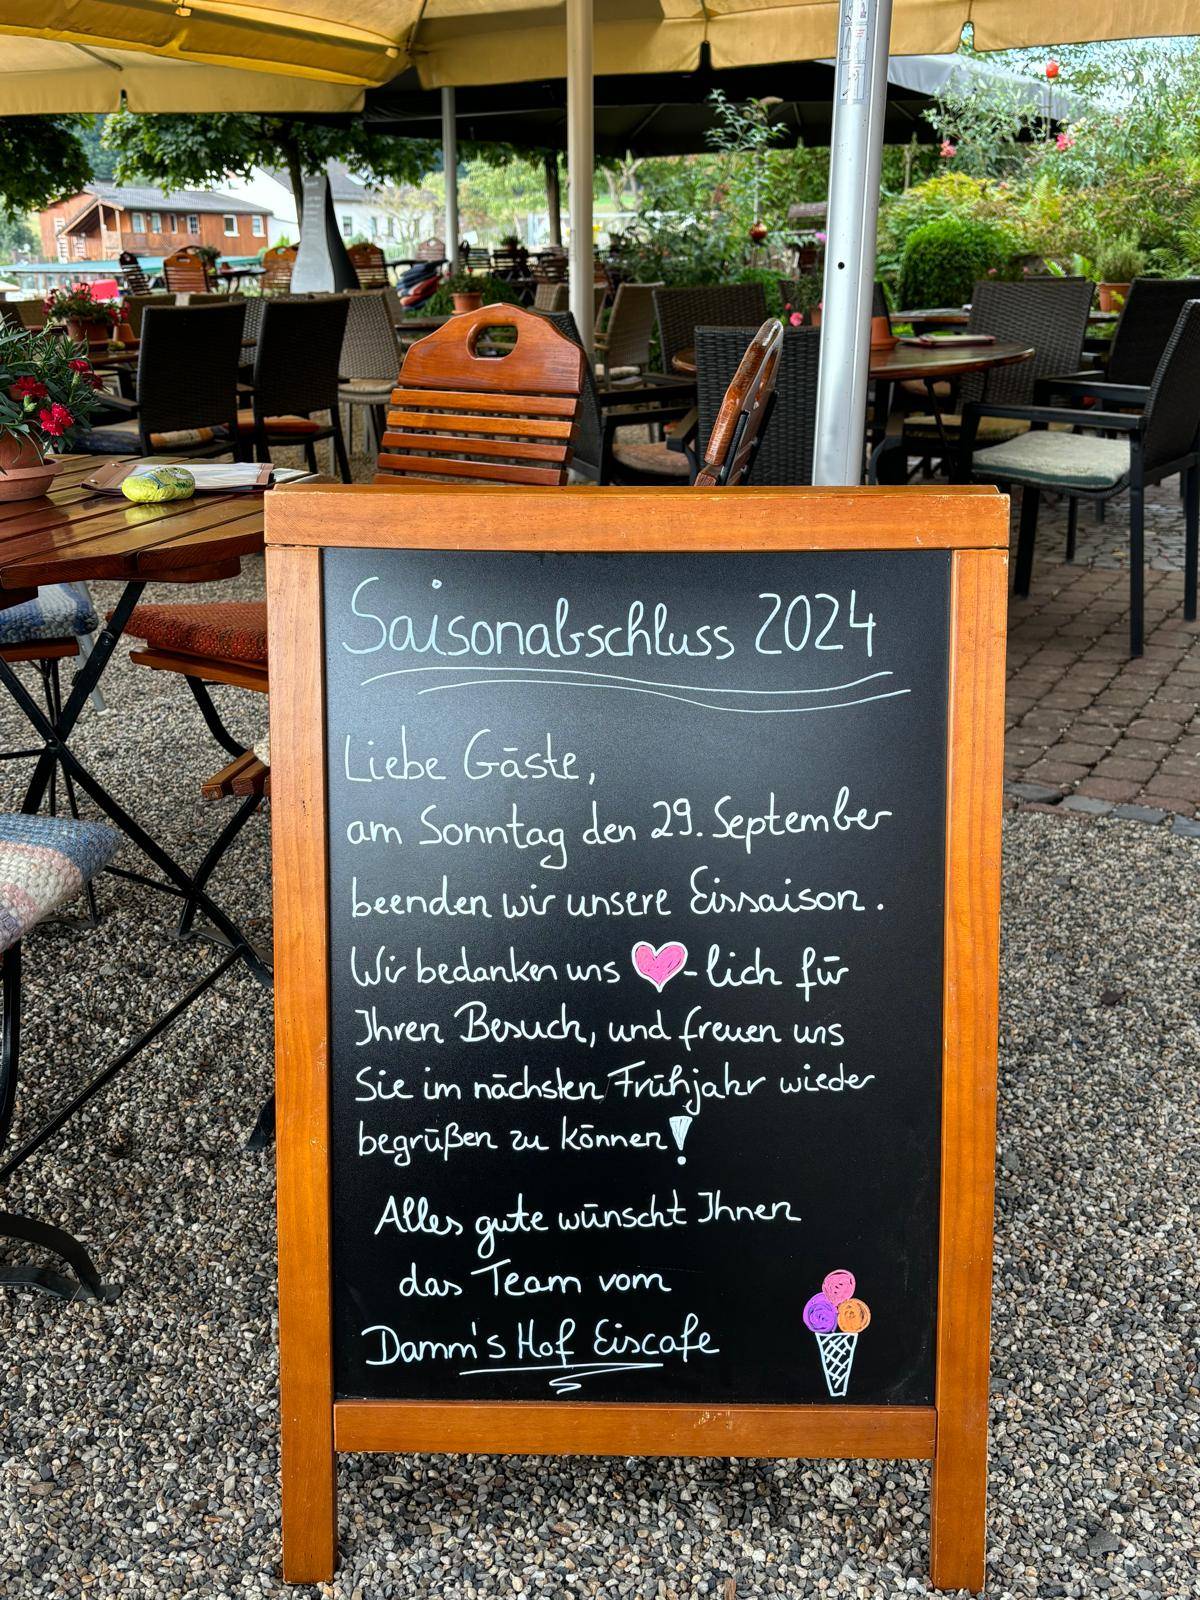 Saisonabschluss 2024
Liebe Gäste,
am Sonntag den 29. September
beenden wir unsere Eissaison.
Wir bedanken uns ♥-lich für
Ihren Besuch, und freuen uns
Sie im nächsten Frühjahr wieder
begrüßen zu können!
Alles gute wünscht Ihnen
das Team vom
Damm's Hof Eiscafe